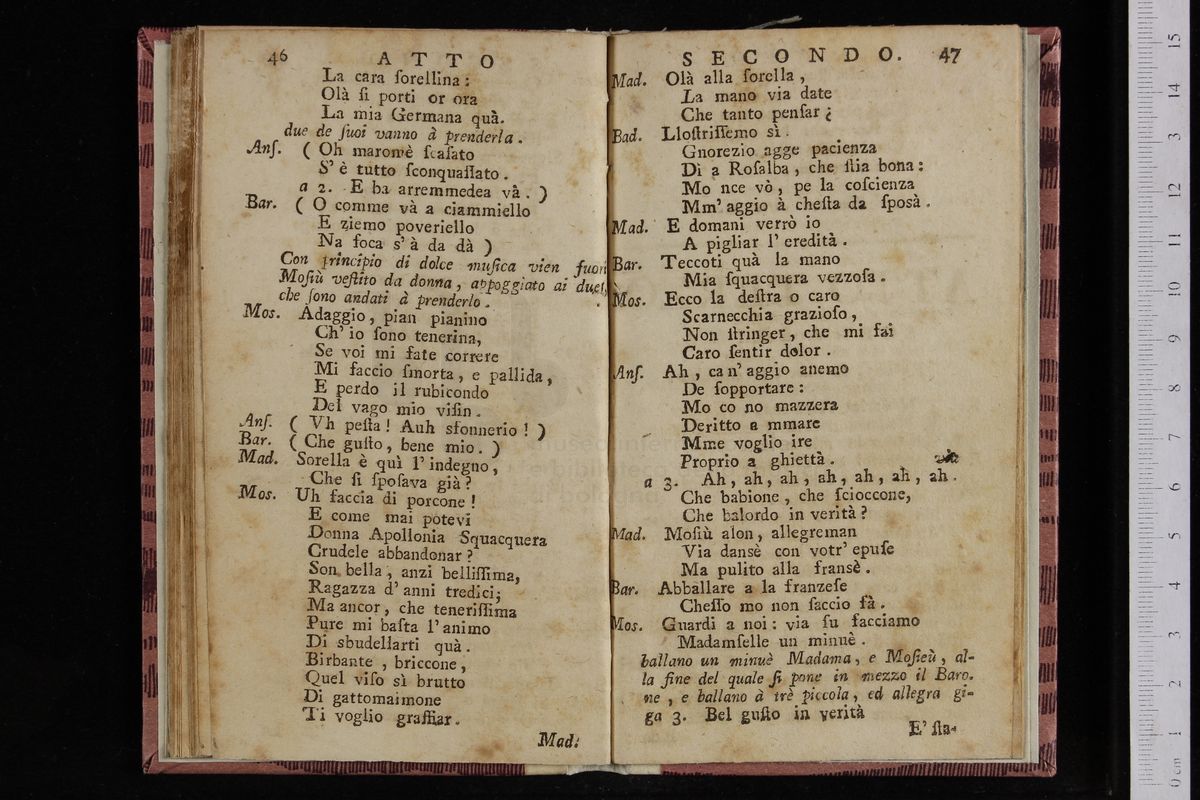 46 ATTO
La cara ſorellina:
Olà ſi porti or ora
La mia Germana quà.
due de ſuoi vanno à prenderla.
Anſ. ( Oh maromè ſcaſato
S' è tutto ſconquaſſato.
a 2. E ba arremmedea và. )
Bar. ( O comme và a ciammiello
E ziemo poveriello
Na foca s' à da dà )
Con principio di dolce muſica vien fuori
Moſiù veſtito da donna, appoggiato ai due,
che ſono andati à prenderlo.
Mos. Adaggio, pian pianino
Ch' io ſono tenerina,
Se voi mi fate correre
Mi faccio ſmorta, e pallida,
E perdo il rubicondo
Del vago mio viſin.
Anſ. ( Vh peſta! Auh sfonnerio! )
Bar. ( Che guſto, bene mio. )
Mad. Sorella è quì l' indegno,
Che ſi ſpoſava già?
Mos. Uh faccia di porcone!
E come mai potevi
Donna Apollonia Squacquera
Crudele abbandonar?
Son bella, anzi belliſſima,
Ragazza d' anni tredici;
Ma ancor, che teneriſſima
Pure mi baſta l' animo
Di sbudellarti quà.
Birbante, briccone,
Quel viſo sì brutto
Di gattomaimone
Ti voglio graffiar.
Mad.
SECONDO. 47
Mad. Olà alla ſorella,
La mano via date
Che tanto penſar?
Bad. Lloſtriſſemo sì.
Gnorezio agge pacienza
Di a Roſalba, che ſtia bona:
Mo nce vò, pe la coſcienza
Mm' aggio à cheſta da ſposà.
Mad. E domani verrò io
A pigliar l' eredità.
Bar. Teccoti quà la mano
Mia ſquacquera vezzoſa.
Mos. Ecco la deſtra o caro
Scarnecchia grazioſo,
Non ſtringer, che mi fai
Caro ſentir dolor.
Anſ. Ah, ca n' aggio anemo
De ſopportare:
Mo co no mazzera
Deritto a mmare
Mme voglio ire
Proprio a ghiettà.
a 3. Ah, ah, ah, ah, ah, ah, ah.
Che babione, che ſcioccone,
Che balordo in verità?
Mad. Moſiù alon, allegreman
Via dansè con votr' epuſe
Ma pulito alla fransè.
Bar. Abballare a la franzeſe
Cheſſo mo non ſaccio fà.
Mos. Guardi a noi: via ſu facciamo
Madamſelle un minuè.
ballano un minuè Madama, e Moſieù, al-
la fine del quale ſi pone in mezzo il Baro.
ne, e ballano à trè piccola, ed allegra gi-
ga 3. Bel guſto in verità
E' ſta-